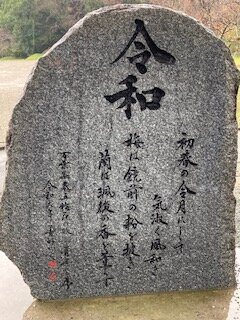 令和
初春の令月にして
気淑く風和ぎ
梅は鏡前の粉を披き
蘭は珮後の香を薫す